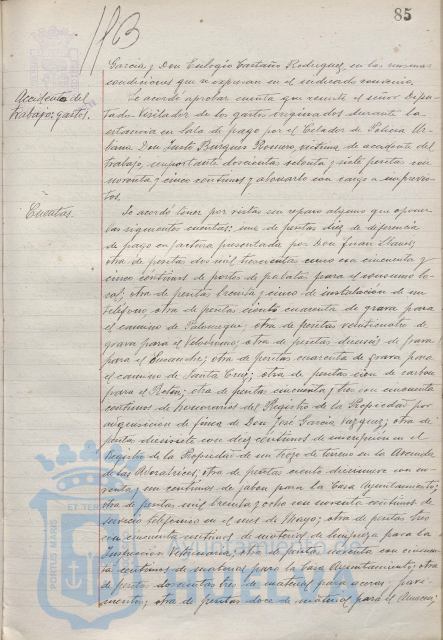 85
García y Don Eulogio Castaño Rodríguez, en las mismas
condiciones que se expresan en el indicado convenio.
Accidente del
trabajo; gastos.
Se acordó aprobar cuenta que remite el señor Dipu
tado Visitador de los gastos originados durante la
estancia en Sala de pago por el Celador de Policía Ur
bana Don Justo Burgués Romero, víctima de accidente del
trabajo, importante doscientas setenta y siete pesetas con
noventa y cinco céntimos y abonarlo con cargo a imprevis
tos.
Cuentas.
Se acordó tener por vistas sin reparo alguno que oponer
las siguientes cuentas: una de pesetas diez de diferencia
de pago en factura presentada por Don Juan
otra de pesetas dos mil trescientas cinco con cincuenta y
cinco céntimos de portes de patatas para el consumo lo
cal; otra de pesetas treinta y cinco de instalación de un
teléfono; otra de pesetas ciento cuarenta de grava para
el camino de otra de pesetas veinticuatro de
grava para el Velódromo; otra de pesetas de grava
para el otra de pesetas cuarenta de grava para
el camino de Santa Cruz; otra de pesetas cien de carbón
para el otra de pesetas cincuenta y tres con cincuenta
céntimos de honorarios del Registro de la Propiedad por
adquisición de finca de Don José García Vázquez; otra de
pesetas diecisiete con diez céntimos de inscripción en el
Registro de la Propiedad de un trozo de terreno en la Avenida
de las Adoratrices; otra de pesetas ciento diecinueve con no
venta y un céntimos de jabón para la Casa Ayuntamiento;
otra de pesetas mil treinta y ocho con noventa céntimos de
servicio telefónico en el mes de Mayo; otra de pesetas tres
con cincuenta céntimos de material de limpieza para la
Inspección Veterinaria; otra de pesetas noventa con cincuen
ta céntimos de material para la Casa Ayuntamiento; otra
de pesetas doscientas tres de material para aceras y pavi
mentos; otra de pesetas doce de material para el
PORTUS MARIS
ET TERRAE